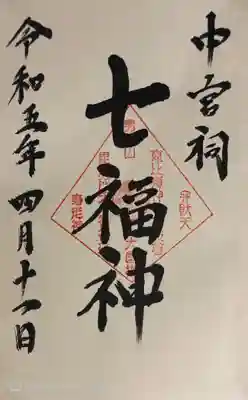 中宮祠
七福神
令和五年 四月十一日